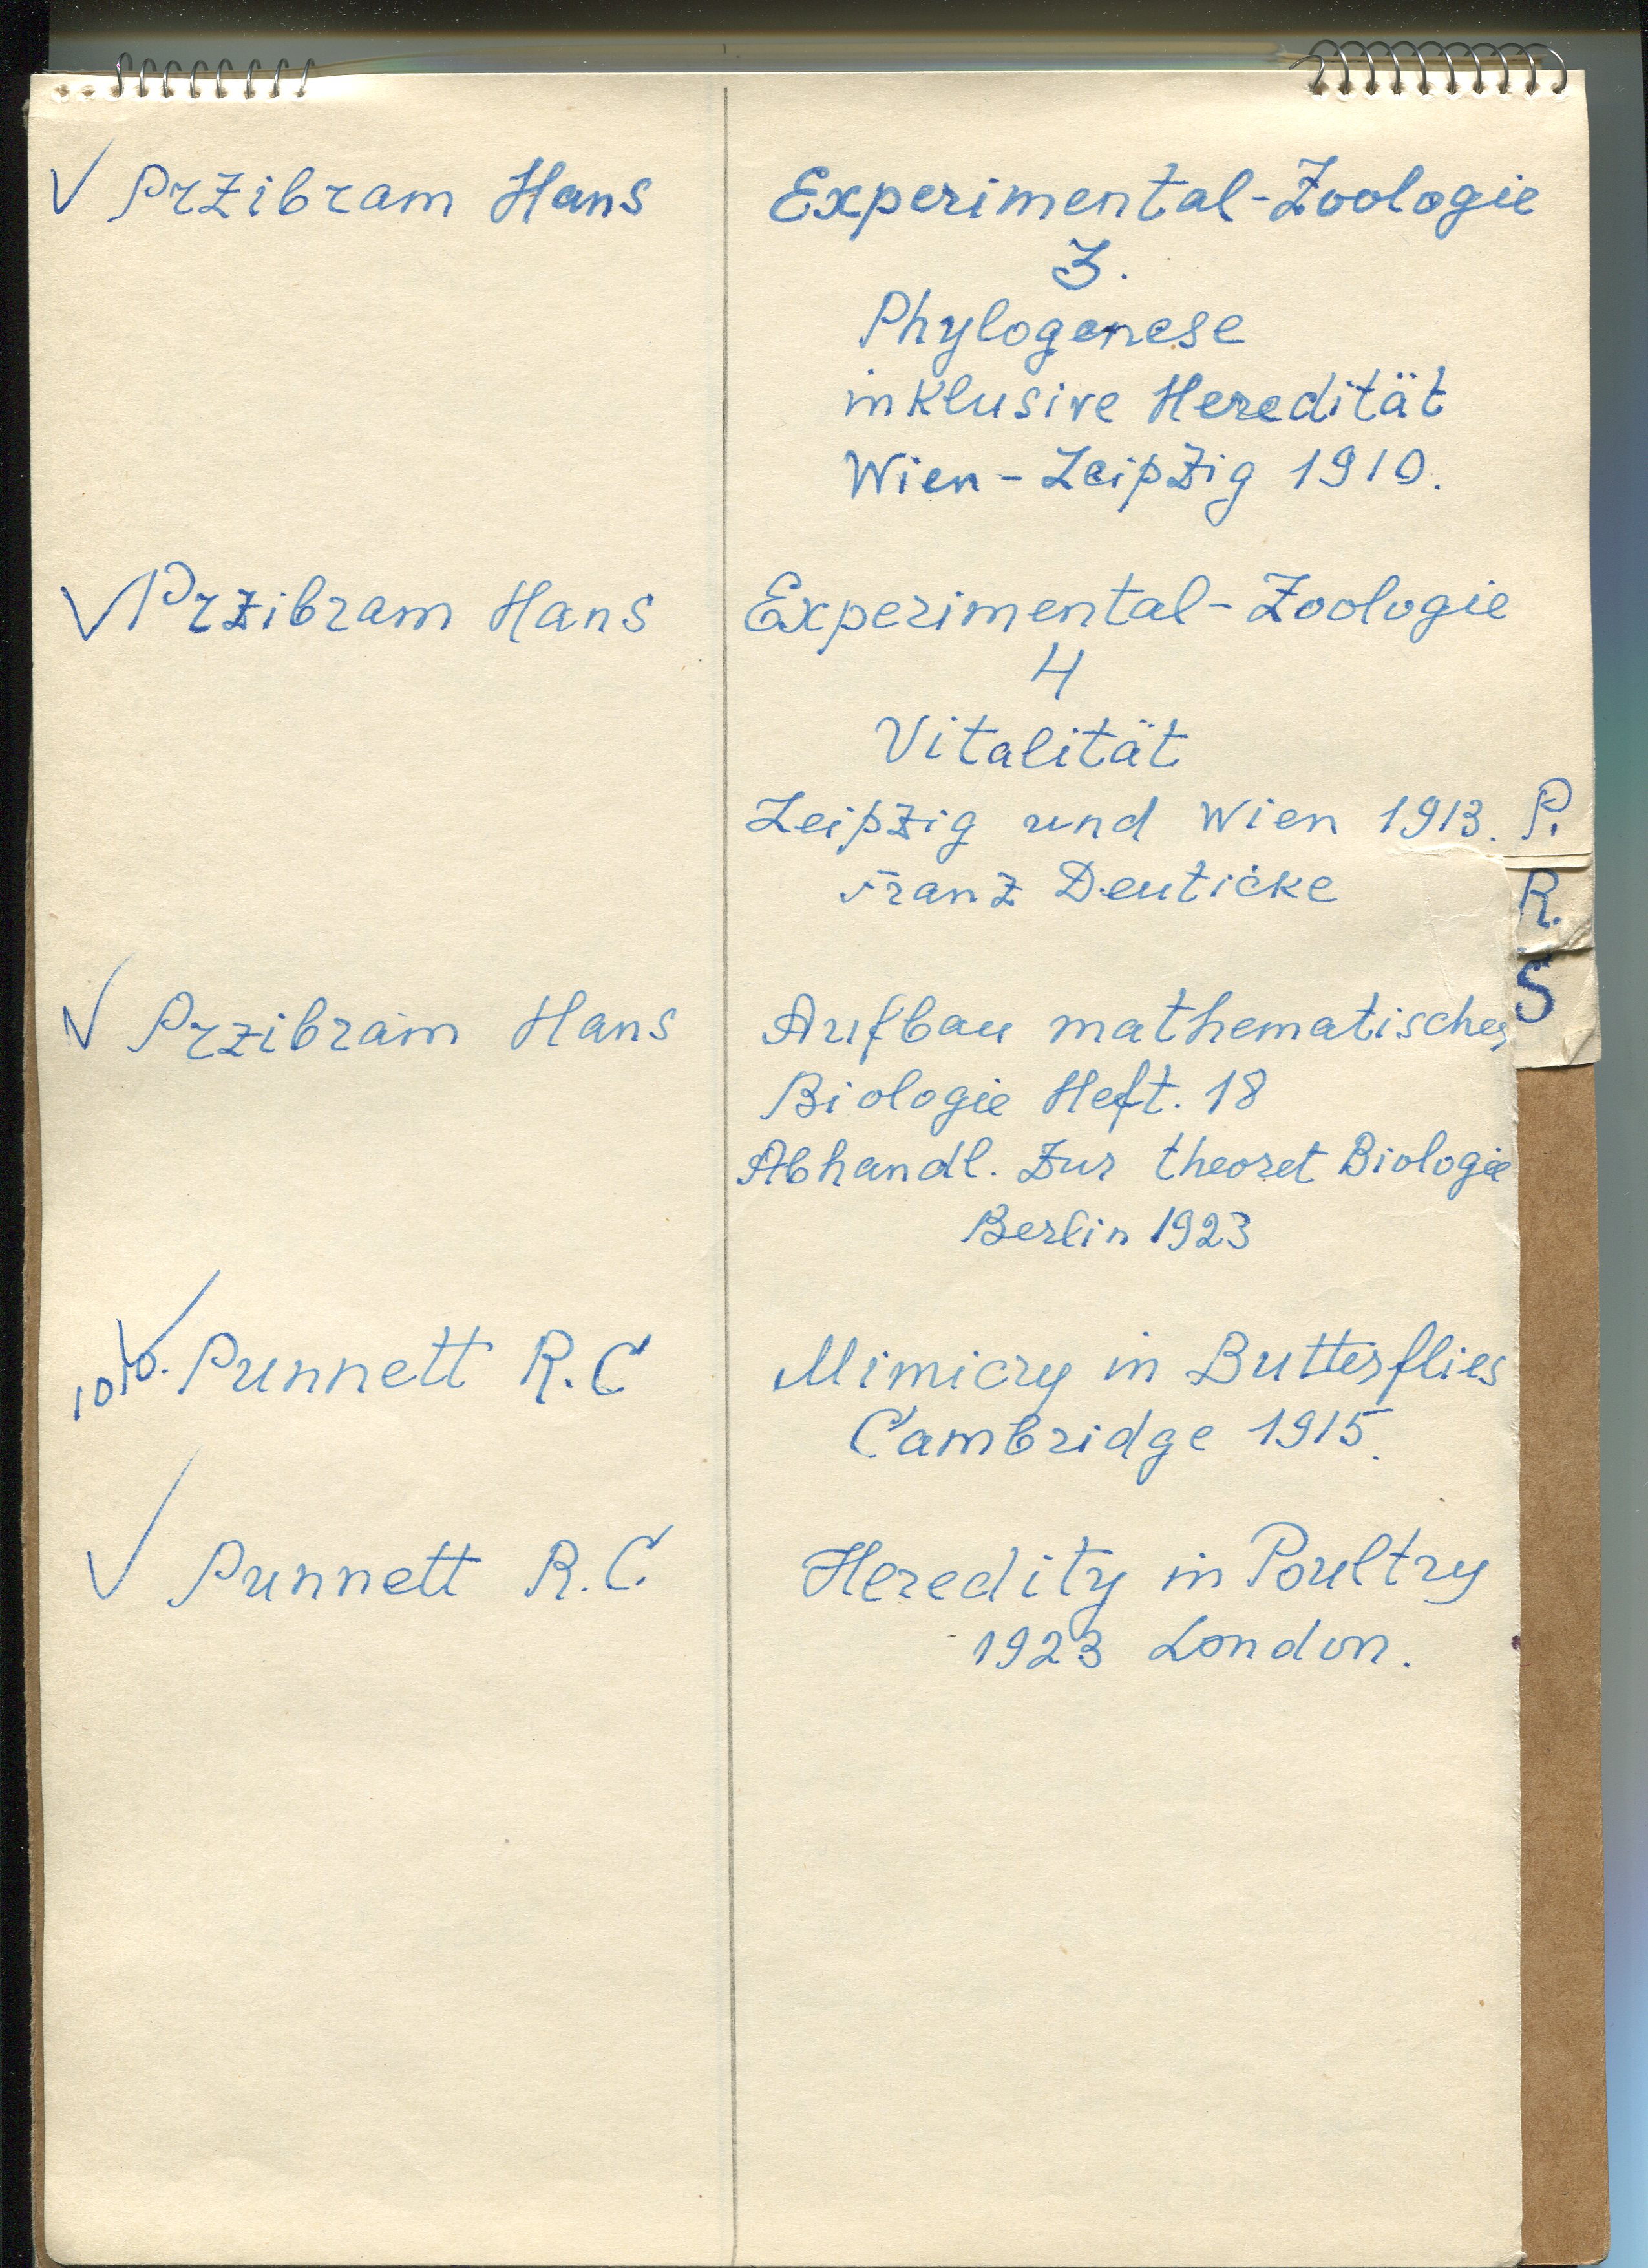 ✓ Przibram Hans Experimental-Zoologie
3.
Phylogenese
inklusive Heredität
Wien-Leipzig 1910.
✓ Przibram Hans Experimental-Zoologie
4
Vitalität
Leipzig und Wien 1913. P.
Franz Deuticke
R.
✓ Przibram Hans Aufbau mathematischer
S
Biologie Heft. 18
Abhandl. Zur theoret Biologie
Berlin 1923
✓ Punnett R.C Mimicry in Butterflies
Cambridge 1915.
✓ Punnett R.C. Heredity in Poultry
1923 London.